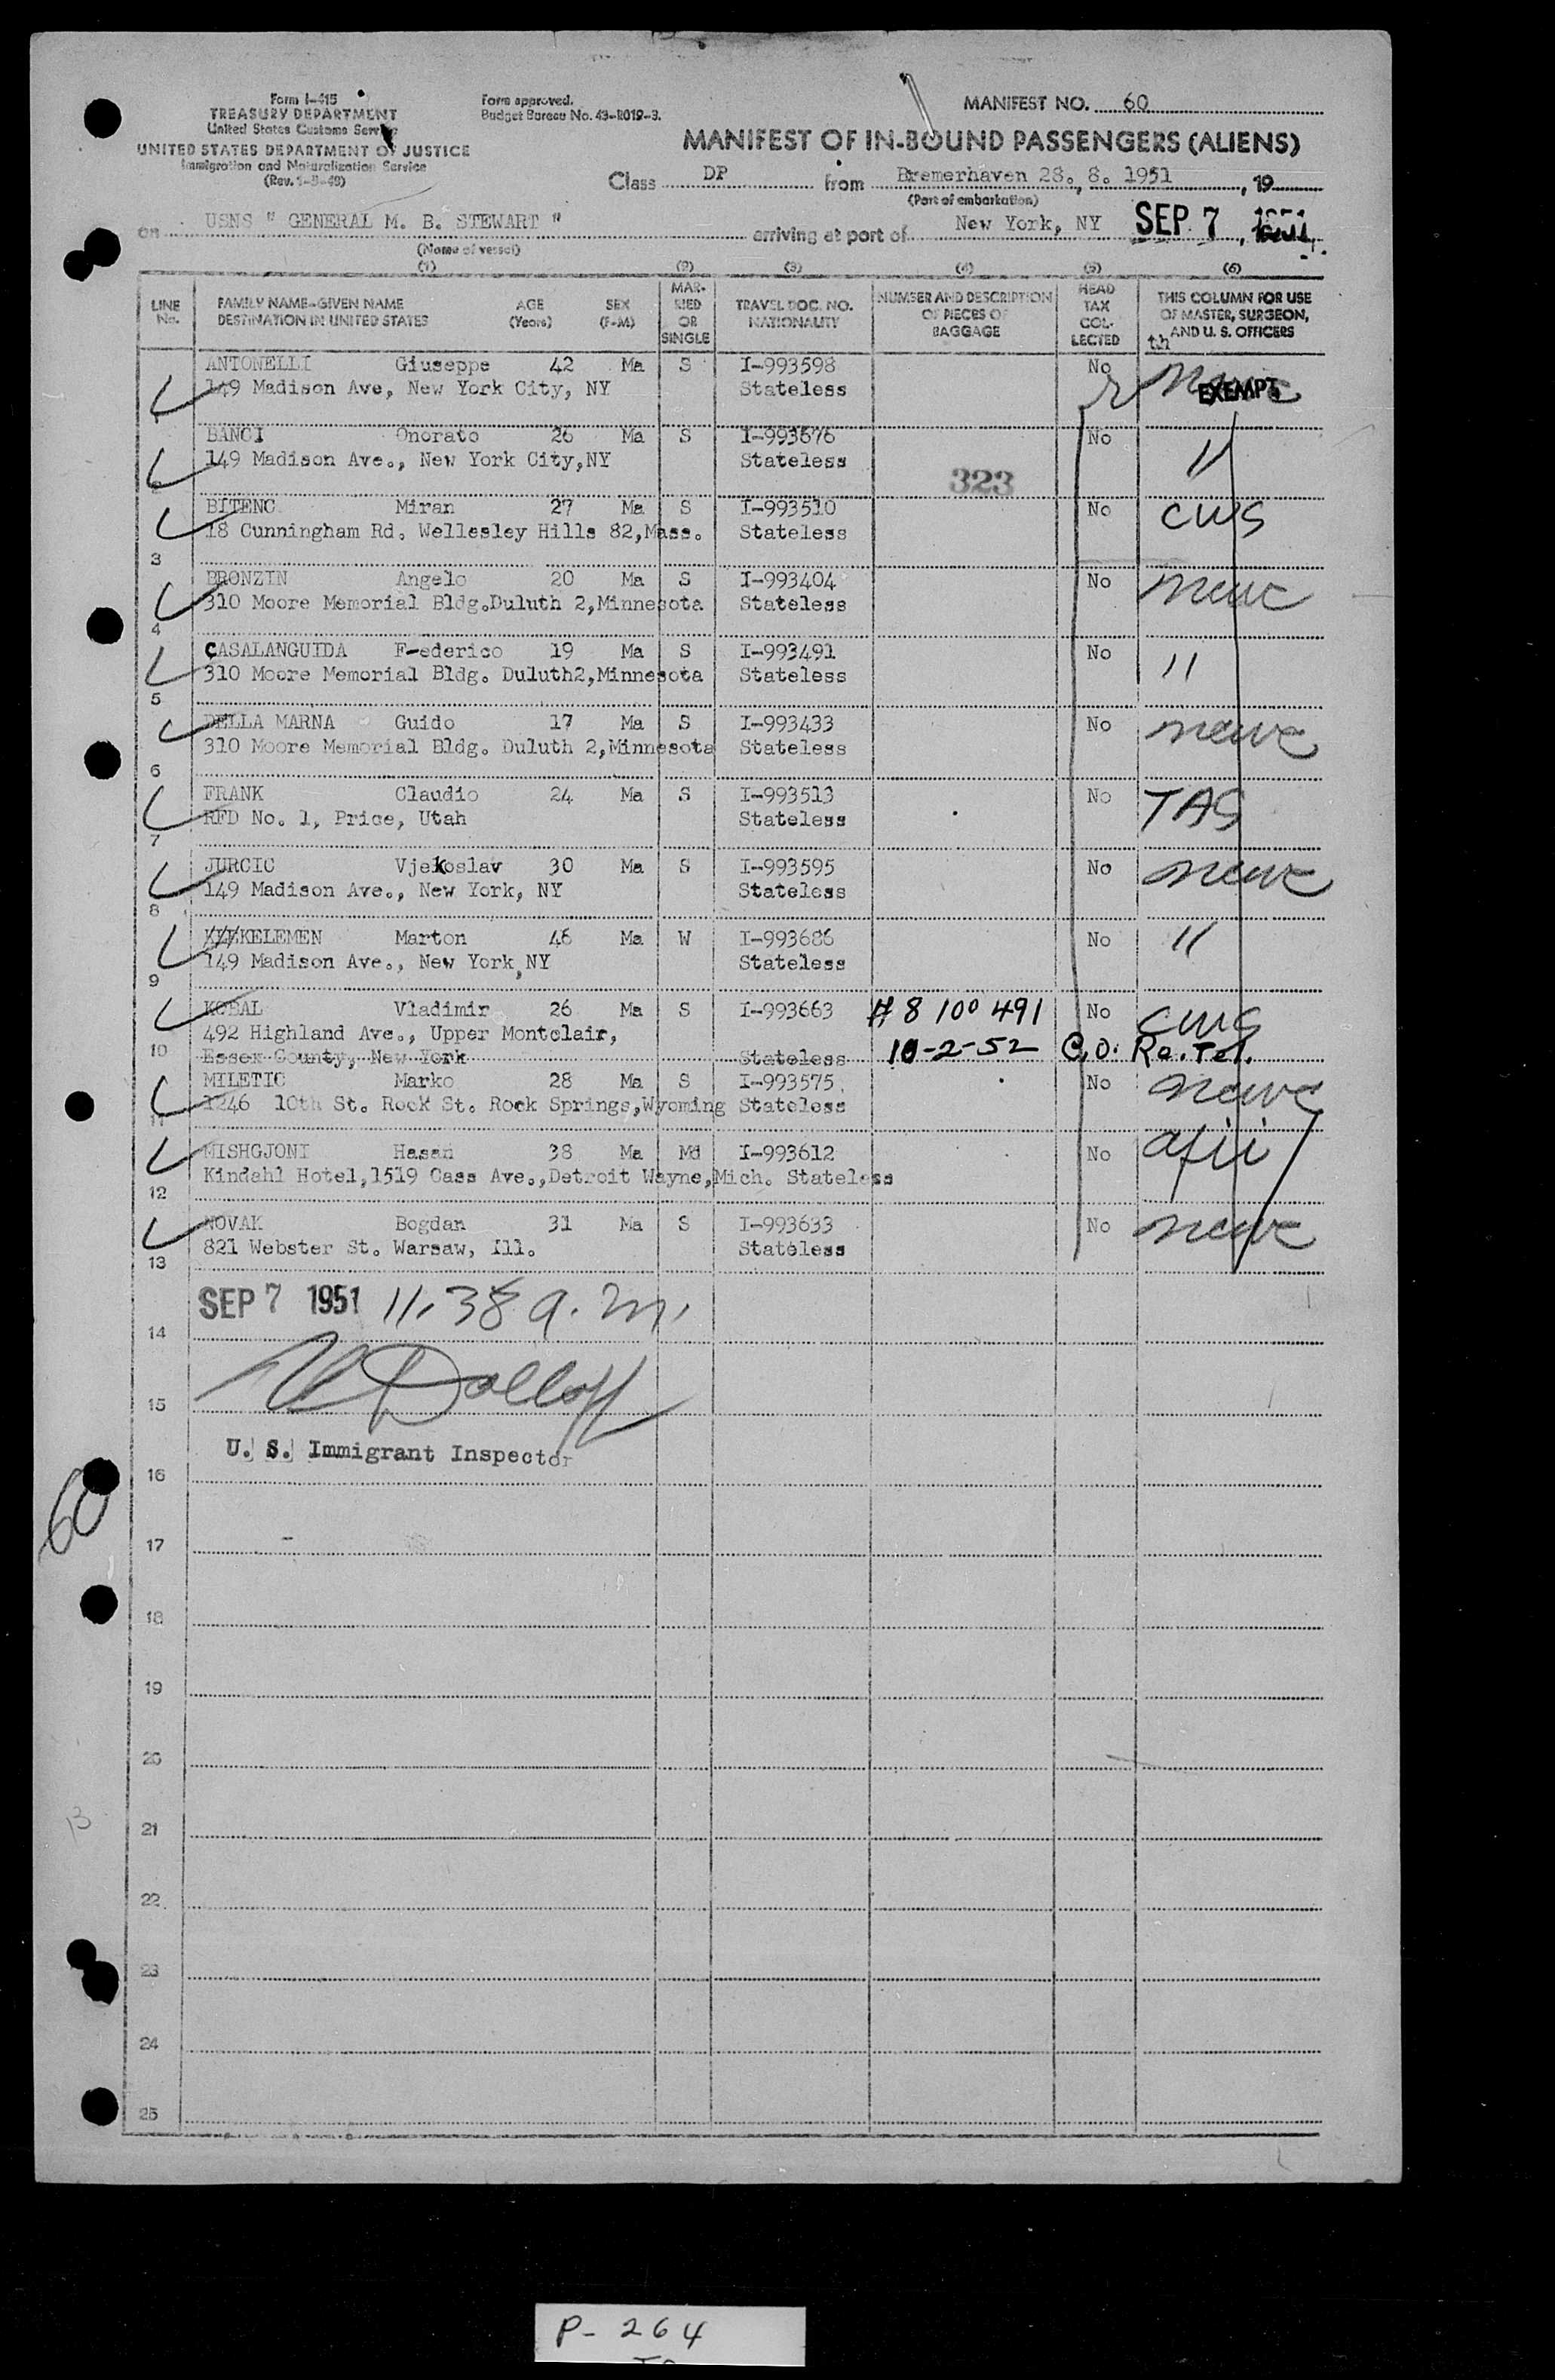 Form I-415
TREASURY DEPARTMENT
United States Customs Service
UNITED STATES DEPARTMENT OF JUSTICE
Immigration and Naturalization Service
Form approved.
Budget Bureau No. 43-R019-3.
MANIFEST NO. 60
MANIFEST OF IN-BOUND PASSENGERS (ALIENS)
Class DP from Bremerhaven 28. 8. 1951, 19
(Port of embarkation)
on USNS " GENERAL M. B. STEWART " arriving at port of New York, NY SEP 7, 1951
(Name of vessel)
(1) (2) (3) (4) (5) (6)
LINE No. FAMILY NAME-GIVEN NAME DESTINATION IN UNITED STATES AGE (Years) SEX (F-M) MARRIED OR SINGLE TRAVEL DOC. NO. NATIONALITY NUMBER AND DESCRIPTION OF PIECES OF BAGGAGE HEAD TAX COLLECTED THIS COLUMN FOR USE OF MASTER, SURGEON, AND U. S. OFFICERS
ANTONELLI Giuseppe 42 Ma S I-993598 No
149 Madison Ave, New York City, NY Stateless EXEMPT
BANCI Onorato 26 Ma S I-993676 No "
149 Madison Ave., New York City,NY Stateless
323
BITENC Miran 27 Ma S I-993510 No CWS
18 Cunningham Rd. Wellesley Hills 82,Mass. Stateless
3
BRONZIN Angelo 20 Ma S I-993404 No
310 Moore Memorial Bldg.Duluth 2,Minnesota Stateless
4
CASALANGUIDA F-ederico 19 Ma S I-993491 No "
310 Moore Memorial Bldg. Duluth2,Minnesota Stateless
5
DELLA MARNA Guido 17 Ma S I-993433 No
310 Moore Memorial Bldg. Duluth 2,Minnesota Stateless
6
FRANK Claudio 24 Ma S I-993513 No TAS
RFD No. 1, Price, Utah Stateless
7
JURCIC Vjekoslav 30 Ma S I-993595 No
149 Madison Ave., New York, NY Stateless
8
KELEMEN Marton 46 Ma W I-993686 No "
149 Madison Ave., New York,NY Stateless
9
KOBAL Vladimir 26 Ma S I-993663 # 8 100 491 No CWS
492 Highland Ave., Upper Montclair,
10 Essex County, New York Stateless 10-2-52 C.O. Re. Tel.
MILETIC Marko 28 Ma S I-993575 No
1246 10th St. Rock St. Rock Springs,Wyoming Stateless
11
MISHGJONI Hasan 38 Ma Md I-993612 No afii
Kindahl Hotel,1519 Cass Ave.,Detroit Wayne,Mich. Stateless
12
NOVAK Bogdan 31 Ma S I-993633 No
821 Webster St. Warsaw, Ill. Stateless
13
SEP 7 1951 11.38 a.m.
14
15
U. S. Immigrant Inspector
16
60
17
18
19
20
13
21
22
23
24
25
P- 264